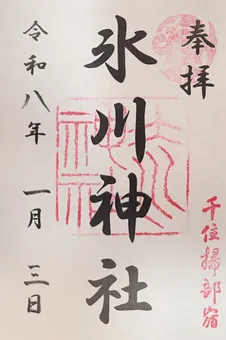 奉拝
千住掃部宿
氷川神社
令和八年 一月 三日